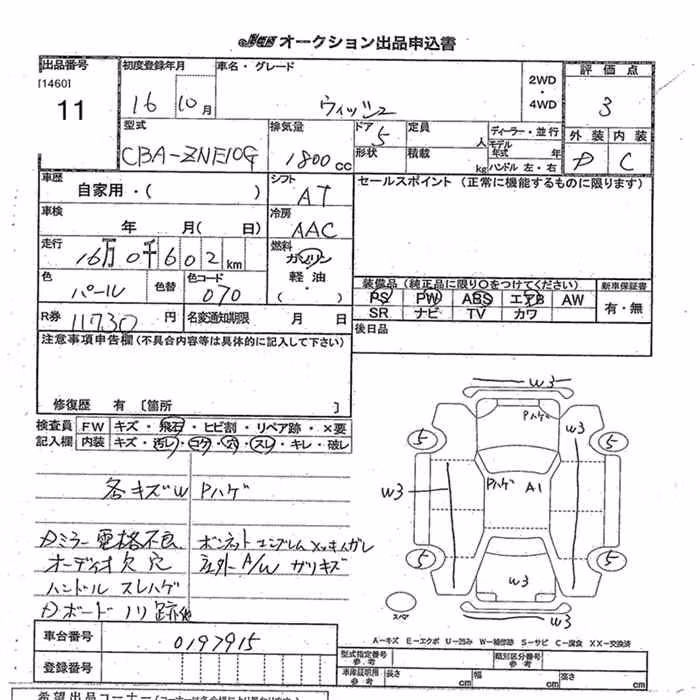 オークション出品申込書
出品番号 初度登録年月 車名・グレード 2WD・4WD 評価点
[1460]
11 16 10月 ウィッシュ 3
型式 排気量 ドア 定員 ディーラー・並行 外装 内装
CBA-ZNE10G 1800cc 5 人 モデル年式 年 D C
形状 積載 kg ハンドル 左・右
車歴 自家用・( ) シフト AT セールスポイント (正常に機能するものに限ります)
車検 年 月( 日) 冷房 AAC
走行 16万0千602km 燃料 ガソリン 軽油 ・( )
色 パール 色替 色コード 070 装備品 (純正品に限り○をつけてください) 新車保証書
PS PW ABS エアB AW 有・無
SR ナビ TV カワ
R券 11730円 名変通知期限 月 日 後日品
注意事項申告欄(不具合内容等は具体的に記入して下さい)
修復歴 有 [箇所 ]
検査員 FW キズ・飛石・ヒビ割・リペア跡・×要
記入欄 内装 キズ・汚レ・コゲ・穴・スレ・キレ・破レ
各キズW Pハゲ
Dミラー 電格不良 ボンネット エンブレム メッキハガレ
オーディオ欠 穴 社外A/W ガリキズ
ハンドル スレハゲ
Dボード ノリ跡他
W3
Pハゲ
5 W3 5
W3 Pハゲ A1
5 W3 5
スペア W3
A-キズ E-エクボ U-凹み W-補修跡 S-サビ C-腐食 XX-交換済
車台番号 0197915 型式指定番号 参考 類別区分番号 参考
登録番号 車庫証明用 参考 長さ cm 幅 cm 高さ cm
希望出品コーナー